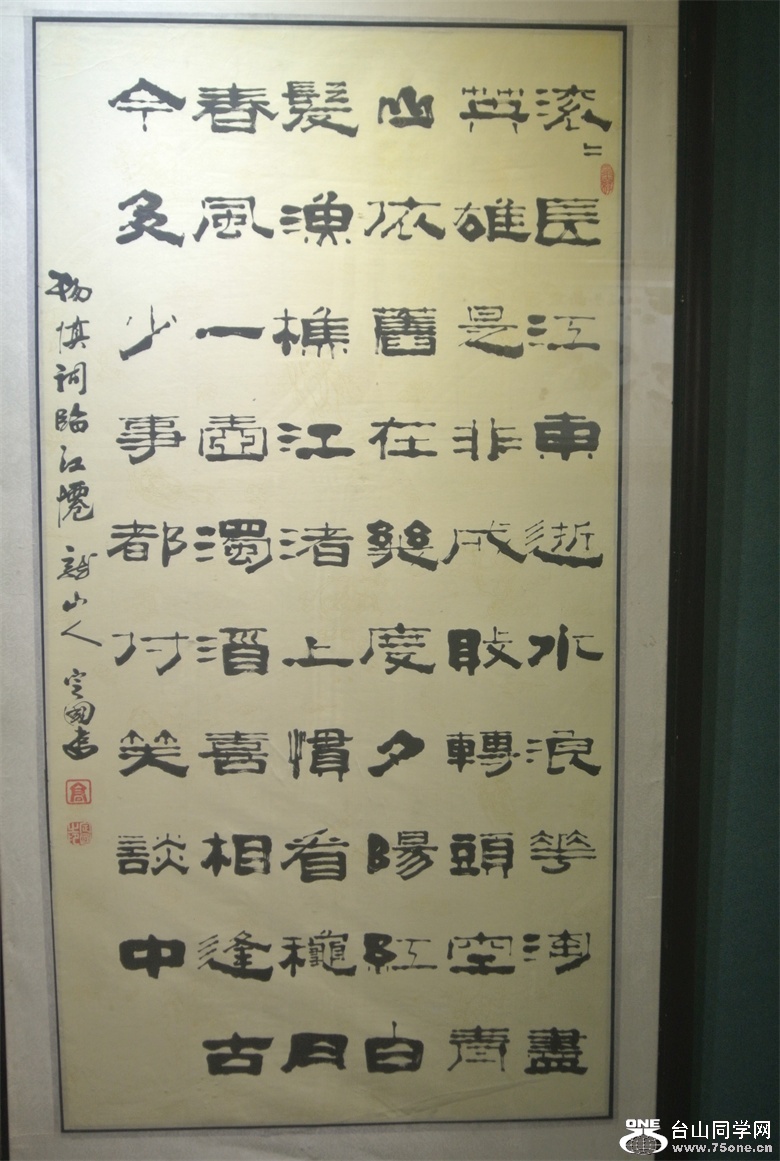 滚〻長江東逝水浪華淘盡
英雄是非成敗轉頭空青
山依舊在幾度夕陽紅白
髮漁樵江渚上慣看龝月
春風一壺濁酒喜相逢古
今多少事都付笑談中
楊慎詞臨江僊 龍山人 定國書
ONE 台山同学网
www.75one.cn